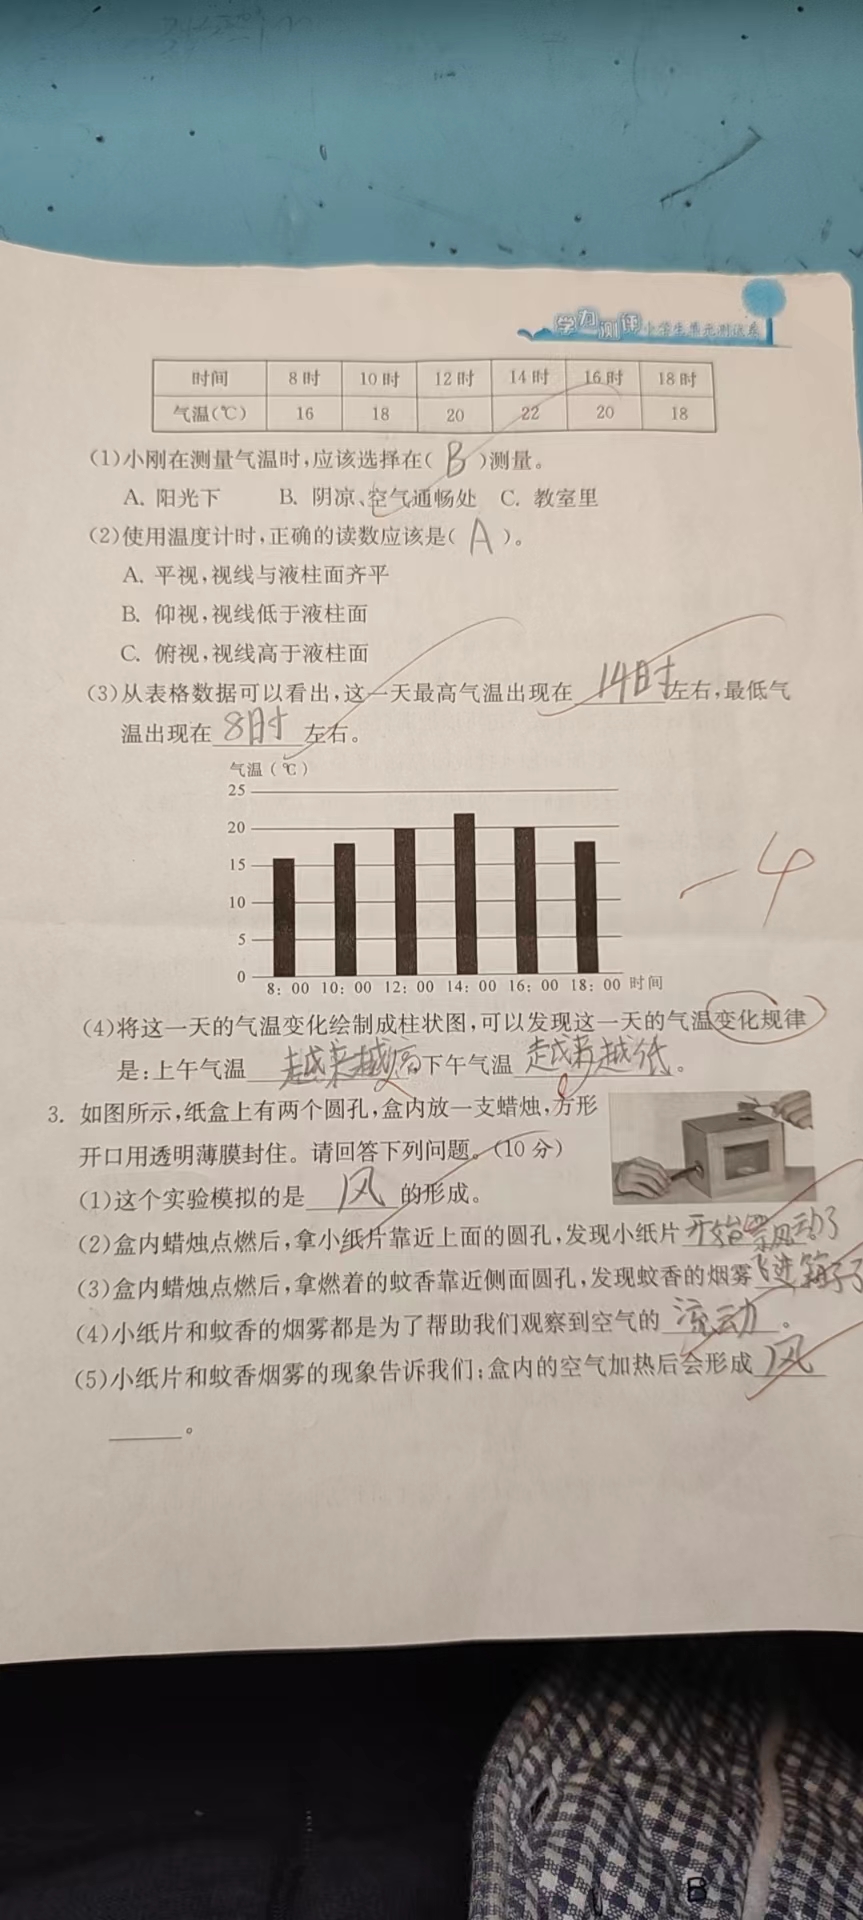 学力测评小学生单元测试卷
时间 8时 10时 12时 14时 16时 18时
气温(℃) 16 18 20 22 20 18
(1)小刚在测量气温时,应该选择在( B )测量。
A. 阳光下 B. 阴凉、空气通畅处 C. 教室里
(2)使用温度计时,正确的读数应该是( A )。
A. 平视,视线与液柱面齐平
B. 仰视,视线低于液柱面
C. 俯视,视线高于液柱面
(3)从表格数据可以看出,这一天最高气温出现在 14时 左右,最低气
温出现在 8时 左右。
气温(℃)
25
20
15
10
5
0
8:00 10:00 12:00 14:00 16:00 18:00 时间
-4
(4)将这一天的气温变化绘制成柱状图,可以发现这一天的气温变化规律
是:上午气温 越来越高 下午气温 越来越低 。
3. 如图所示,纸盒上有两个圆孔,盒内放一支蜡烛,方形
开口用透明薄膜封住。请回答下列问题。(10分)
(1)这个实验模拟的是 风 的形成。
(2)盒内蜡烛点燃后,拿小纸片靠近上面的圆孔,发现小纸片 开始 动了
(3)盒内蜡烛点燃后,拿燃着的蚊香靠近侧面圆孔,发现蚊香的烟雾 飞进箱子了
(4)小纸片和蚊香的烟雾都是为了帮助我们观察到空气的 流动 。
(5)小纸片和蚊香烟雾的现象告诉我们:盒内的空气加热后会形成 风
。
B